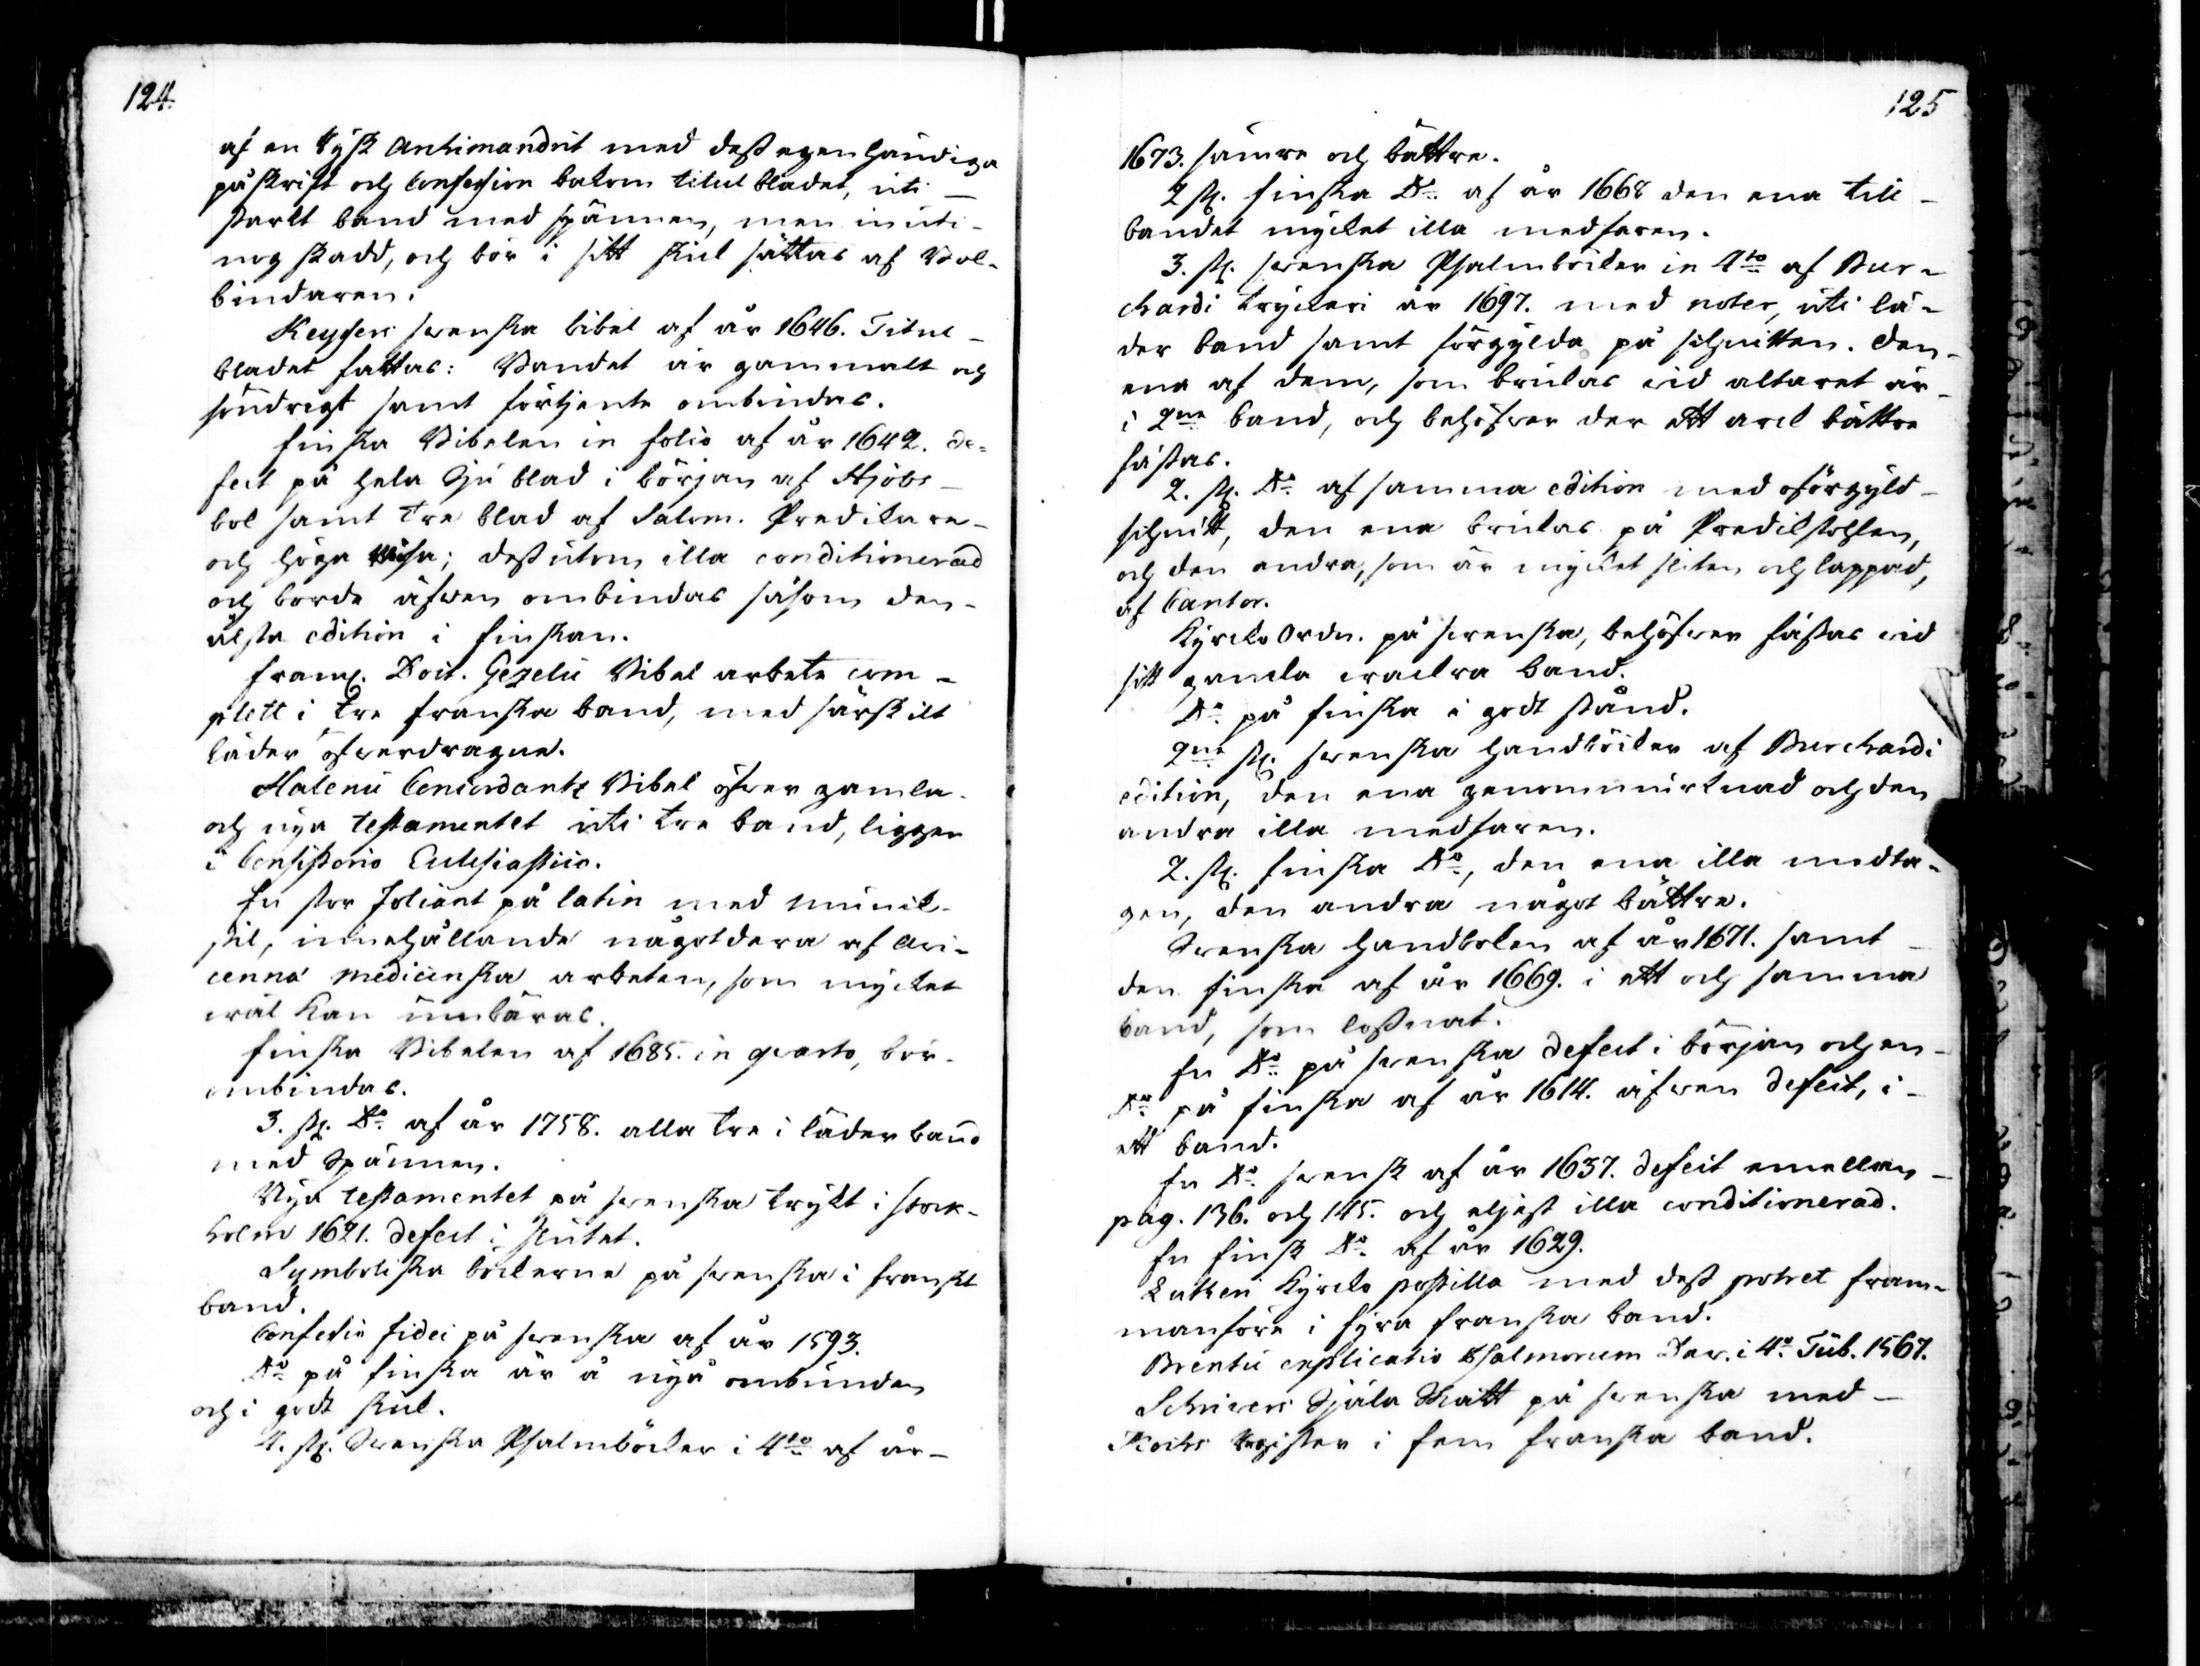 124.
af en Rysk Archimandrit med dess egenhändiga
påskrift och Confession bakom titul bladet, uti
starkt band med spännen, men inuti
nog skadd, och bör i sitt skick sättas af Bok-
bindaren.
Keysers swenska bibel af år 1646. Titul
bladet fattas: Bandet är gammalt och
söndrigt samt förtjente ombindas.
Finska Bibelen in folio af år 1642. de-
fect på hela Sju blad i början af Hjobs
bok samt tre blad af Salom. Predikare
och höga Visa; dessutom illa conditionerad
och borde äfwen ombindas såsom den
älsta edition i finskan.
Framl. Doct. Gezelii Bibel arbete com-
plett i tre franska band, med särskilt
läder öfwerdragne.
Halenii Concordantz Bibel öfwer gamla
och nya testamentet uti tre band, ligger
i Consistorio Ecclesiastico.
En stor foliant på latin med munk-
stil, innehållande någotdera af Avi-
cennæ medicinska arbeten, som mycket
wäl kan umbäras.
Finska Bibelen af 1685. in quarto, bör
ombindas.
3. st. Do af år 1758. alla tre i läder band
med Spännen.
Nya testamentet på swenska trykt i Stock-
holm 1621. defect i slutet.
Symboliska böckerne på swenska i franskt
band.
Confessio fidei på swenska af år 1593.
Do på finska är å nya ombunden
och i godt skick.
4. st. Swenska Psalmböcker i 4to af år
125
1673. sämre och bättre.
2 st. finska Do af år 1668 den ena till
bandet mycket illa medfaren.
3. st. swenska Psalmböcker in 4to af Bur-
chardi tryckeri år 1697. med noter, uti lä-
der band samt förgylda på schnitten. Den
ena af dem, som brukas wid altaret är
i 2ne band, och behöfwer der ett arck bättre
fästas.
2. st. Do af samma edition med oförgyld
schnitt, den ena brukas på Predikstohlen,
och den andra, som är mycket sliten och lappad,
af Cantor.
Kyrcko Ordn. på swenska, behöfwer fästas wid
sitt gamla wackra band.
Do på finska i godt stånd.
2ne st. swenska handböcker af Burchardi
edition, den ena genommurknad och den
andra illa medfaren.
2. st. finska Do, den ena illa medta-
gen, den andra något bättre.
Swenska handboken af år 1671. samt
den finska af år 1669. i ett och samma
band, som lossnat.
En Do på swenska defect i början och en
Do på finska af år 1614. äfwen defect, i
ett band.
En Do swensk af år 1637. defect emellan
pag. 136. och 145. och eljest illa conditionerad.
En finsk Do af år 1629.
Lutheri Kyrcko postilla med dess potret fram-
manföre i fyra franska band.
Brentii explicatio Psalmorum Dav. i 4o Tüb. 1567.
Schriwers Själa Skatt på swenska med
Kochs Register i fem franska band.